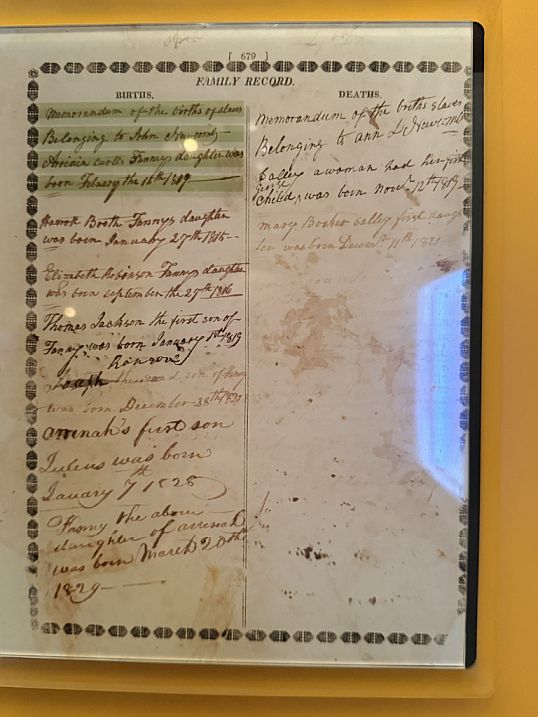 [ 679 ]
FAMILY RECORD.
BIRTHS.
Memorandum of the births of slaves
Belonging to John Newcomb
Arrinia curtis Fannys daughter was
born Febuary the 16th 1809
Harrot Booth Fannys daughter
was born January 27th 1815
Elizabeth Robinson Fannys daughter
was born September the 27th 1816
Thomas Jackson the first son of
Fanny was born January 1st 1819
Joseph the second son of Fanny
was born December 28th
arrenah's first son
Juleus was born
January 7th 1828
Fanny the above
daughter of arrenah
was born March 20th
1829
DEATHS.
Memorandum of the births slaves
Belonging to ann L Newcomb
Salley a woman had her first
george
Child was born Novr 12th 1819
mary Booker Sally first daugh
ter was born Decemr 11th 1821